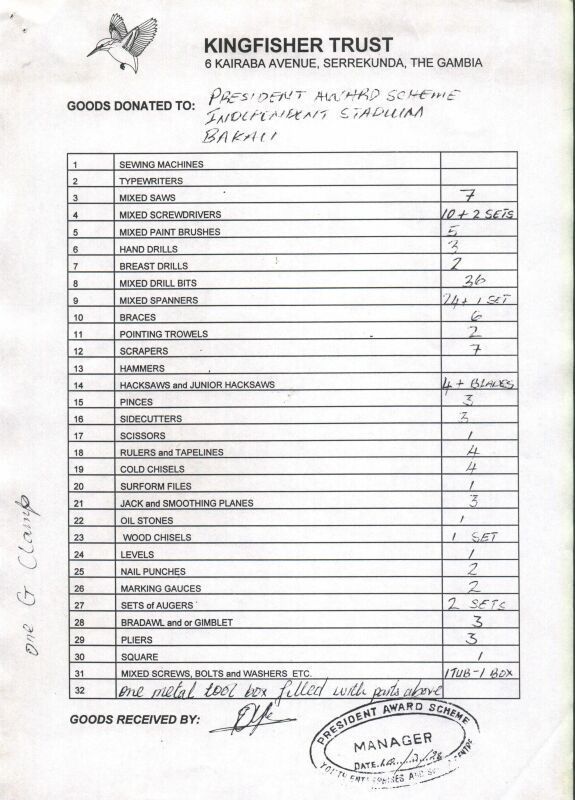 KINGFISHER TRUST
6 KAIRABA AVENUE, SERREKUNDA, THE GAMBIA
GOODS DONATED TO: PRESIDENT AWARD SCHEME
INDEPENDENT STADIUM
BAKAU
1 SEWING MACHINES
2 TYPEWRITERS
3 MIXED SAWS 7
4 MIXED SCREWDRIVERS 10 + 2 SETS
5 MIXED PAINT BRUSHES 5
6 HAND DRILLS 3
7 BREAST DRILLS 2
8 MIXED DRILL BITS 36
9 MIXED SPANNERS 24 + 1 SET
10 BRACES 6
11 POINTING TROWELS 2
12 SCRAPERS 7
13 HAMMERS
14 HACKSAWS and JUNIOR HACKSAWS 4 + BLADES
15 PINCES 3
16 SIDECUTTERS 3
17 SCISSORS 1
18 RULERS and TAPELINES 4
19 COLD CHISELS 4
20 SURFORM FILES 1
21 JACK and SMOOTHING PLANES 3
22 OIL STONES 1
23 WOOD CHISELS 1 SET
24 LEVELS 1
25 NAIL PUNCHES 2
26 MARKING GAUCES 2
27 SETS of AUGERS 2 SETS
28 BRADAWL and or GIMBLET 3
29 PLIERS 3
30 SQUARE 1
31 MIXED SCREWS, BOLTS and WASHERS ETC. 1 TUB - 1 BOX
32 one metal tool box filled with parts above
one G Clamp
GOODS RECEIVED BY:
PRESIDENT AWARD SCHEME
MANAGER
DATE
YOUTH ENTERPRISES AND CENTRE